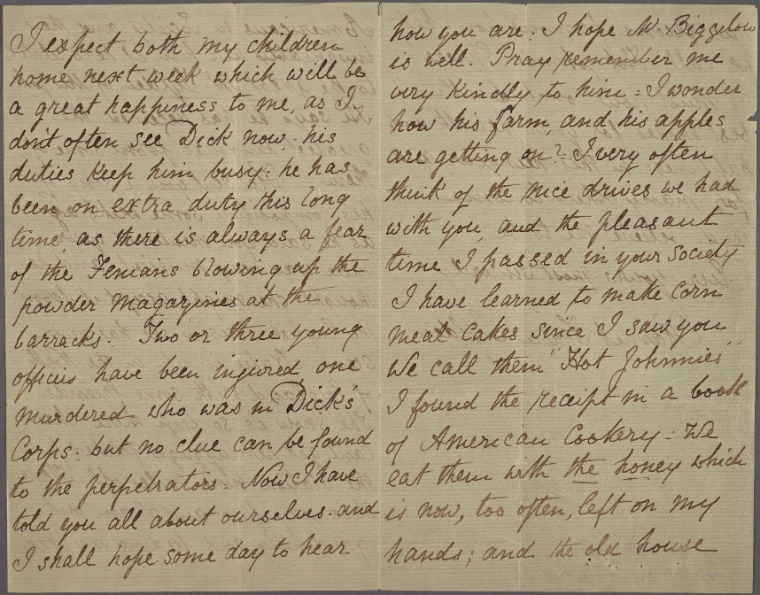 I expect both my children
home next week which will be
a great happiness to me, as I
don't often see Dick now. his
duties keep him busy: he has
been on extra duty this long
time, as there is always a fear
of the Fenians blowing up the
powder magazines at the
barracks. Two or three young
officers have been injured one
murdered who was in Dick's
Corps. but no clue can be found
to the perpetrators = Now I have
told you all about ourselves. and
I shall hope some day to hear
how you are. I hope Mr. Biggelow
is well. Pray remember me
very kindly to him = I wonder
how his farm, and his apples
are getting on? I very often
think of the nice drives we had
with you, and the pleasant
time I passed in your society
I have learned to make corn
meal cakes since I saw you
We call them "Hot Johnnies"
I found the receipt in a book
of American Cookery = We
eat them with the honey which
is now, too often, left on my
hands; and the old house